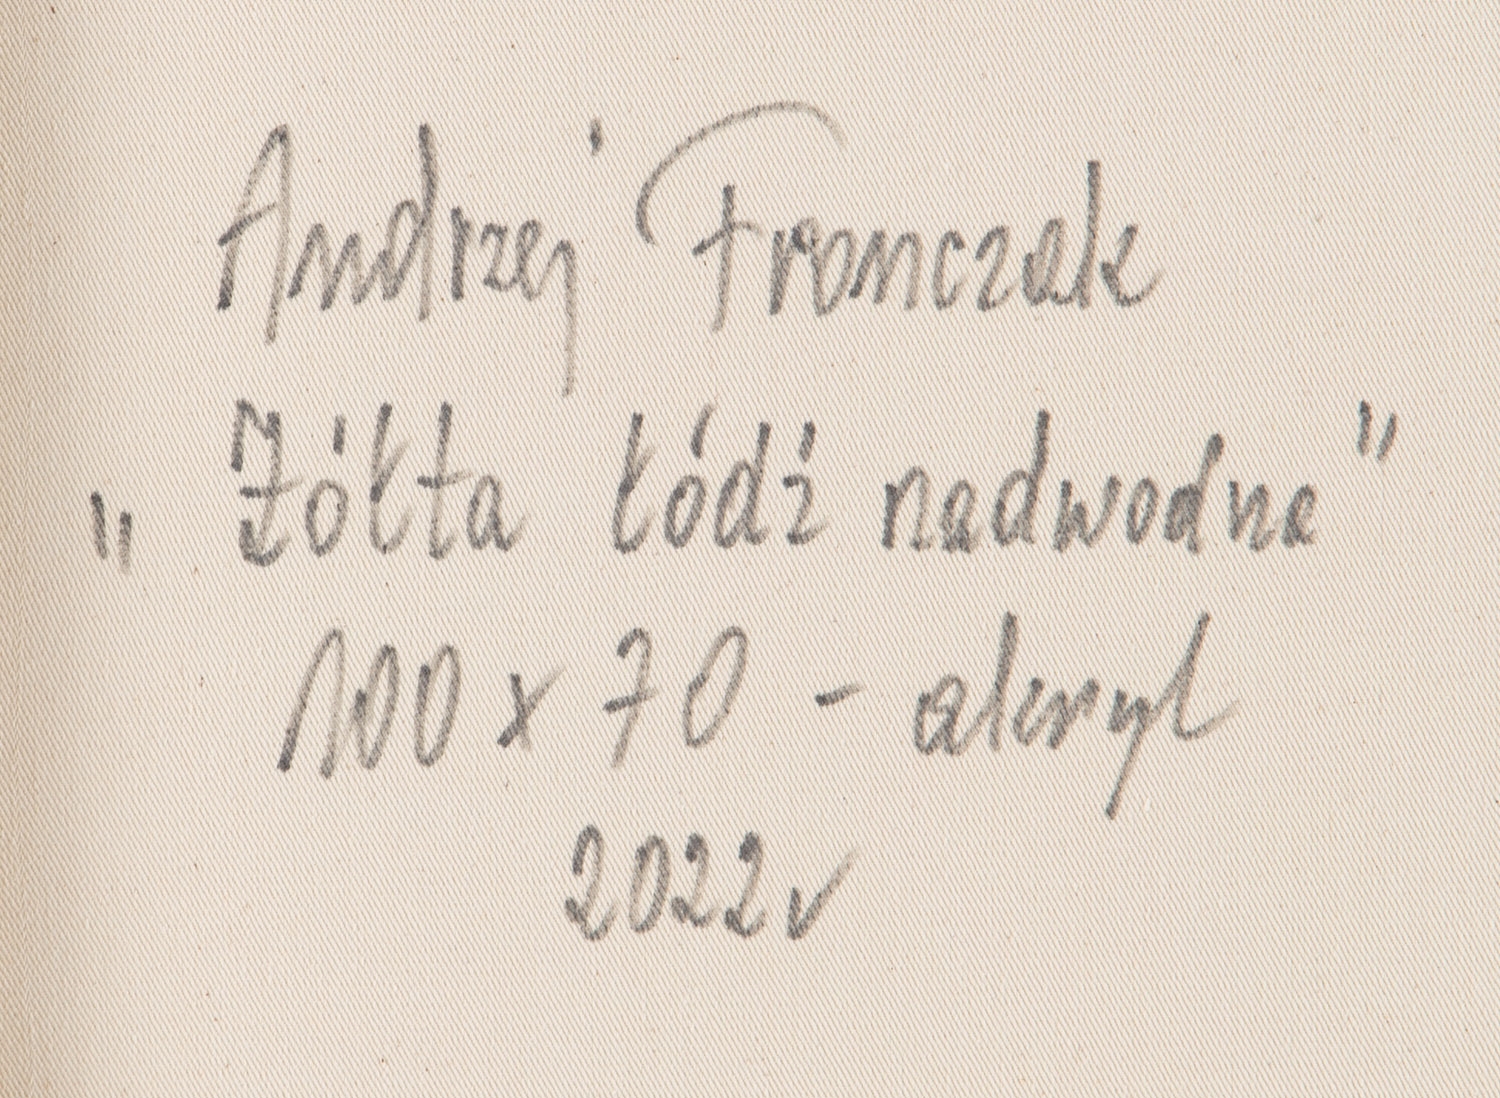 Andrzej Fronczak
„Żółta łódź nadwodna"
100 x 70 - akryl
2022r